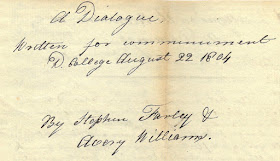 A Dialogue.
Written for commencment
D. College August 22 1804
By Stephen Farley &
Avery Williams.